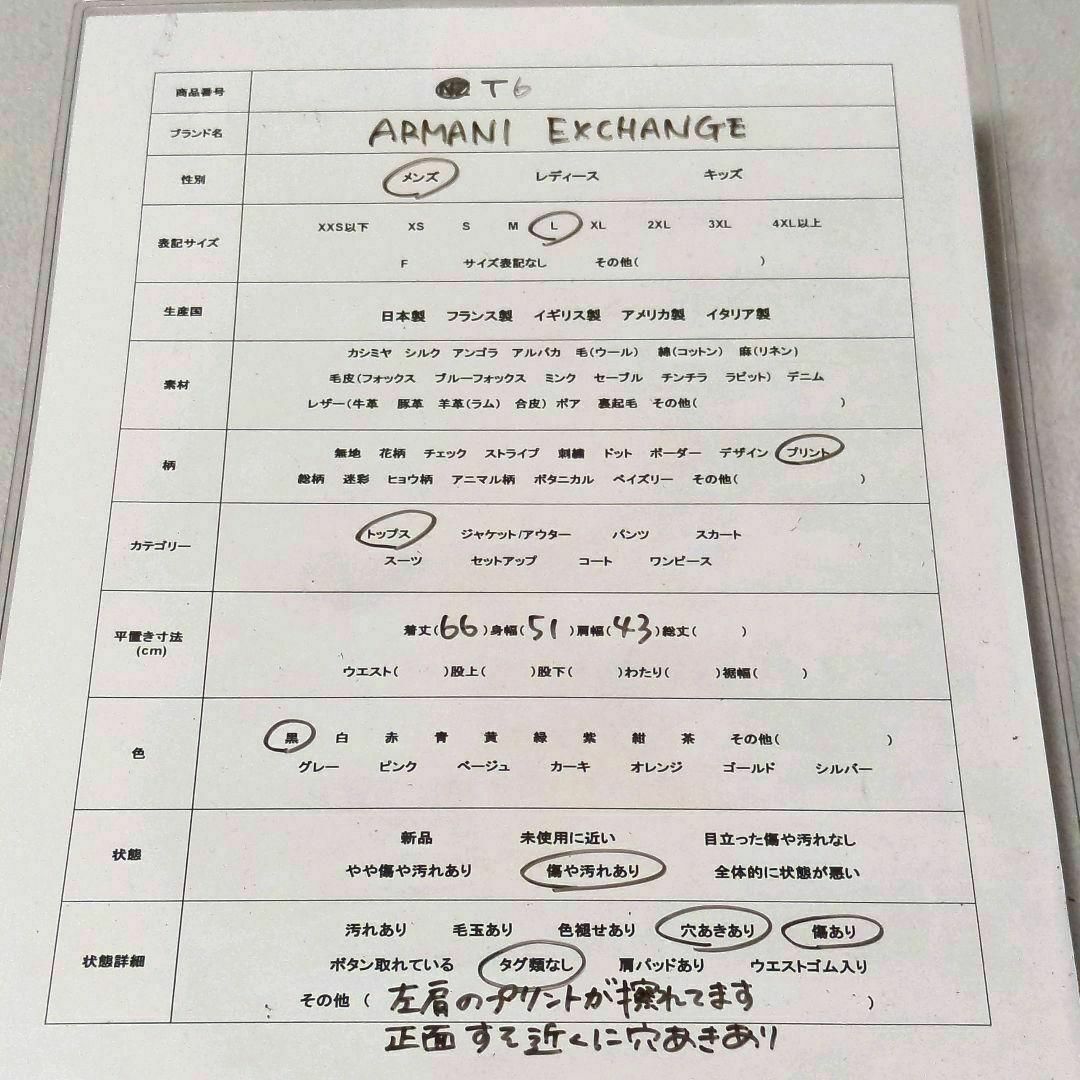 商品番号 T6
ブランド名 ARMANI EXCHANGE
性別 メンズ レディース キッズ
表記サイズ XXS以下 XS S M L XL 2XL 3XL 4XL以上
F サイズ表記なし その他( )
生産国 日本製 フランス製 イギリス製 アメリカ製 イタリア製
素材 カシミヤ シルク アンゴラ アルパカ 毛(ウール) 綿(コットン) 麻(リネン)
毛皮(フォックス ブルーフォックス ミンク セーブル チンチラ ラビット) デニム
レザー(牛革 豚革 羊革(ラム) 合皮) ボア 裏起毛 その他( )
柄 無地 花柄 チェック ストライプ 刺繍 ドット ボーダー デザイン プリント
総柄 迷彩 ヒョウ柄 アニマル柄 ボタニカル ペイズリー その他( )
カテゴリー トップス ジャケット/アウター パンツ スカート
スーツ セットアップ コート ワンピース
平置き寸法 (cm) 着丈(66)身幅(51)肩幅(43)総丈( )
ウエスト( )股上( )股下( )わたり( )裾幅( )
色 黒 白 赤 青 黄 緑 紫 紺 茶 その他( )
グレー ピンク ベージュ カーキ オレンジ ゴールド シルバー
状態 新品 未使用に近い 目立った傷や汚れなし
やや傷や汚れあり 傷や汚れあり 全体的に状態が悪い
状態詳細 汚れあり 毛玉あり 色褪せあり 穴あきあり 傷あり
ボタン取れている タグ類なし 肩パッドあり ウエストゴム入り
その他 ( 左肩のプリントが擦れてます )
正面すそ近くに穴あきあり